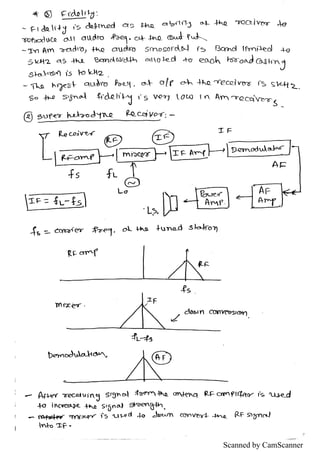 ⑤ Fidelity:
- Fidelity is defined as the ability of the receiver to
reproduce all audio freq. at the out put.
- In Am radio, the audio is Band limited to
5 kHz as the Bandwidth alloted to each broadcasting
station is 10 kHz.
- The highest audio freq. at o/p of the receiver is 5kHz.
So the signal fidelity is very low in Am-receivers
② Super hetrodyne Receiver: -
Receiver RF IF IF
RF amp mixer IF Amp Demodulator
fs fL AF
Lo
IF = fL-fs Ls. Power Amp AF Amp
fs = carrier freq. of the tuned station
RF amp RF
fs
mixer. IF
down conversion.
fL-fs
Demodulation, AF
- After receiving signal form the antena RF amplifier is used
to increase the signal strength.
- mixer is used to down convert the RF signal
Into IF.
Scanned by CamScanner